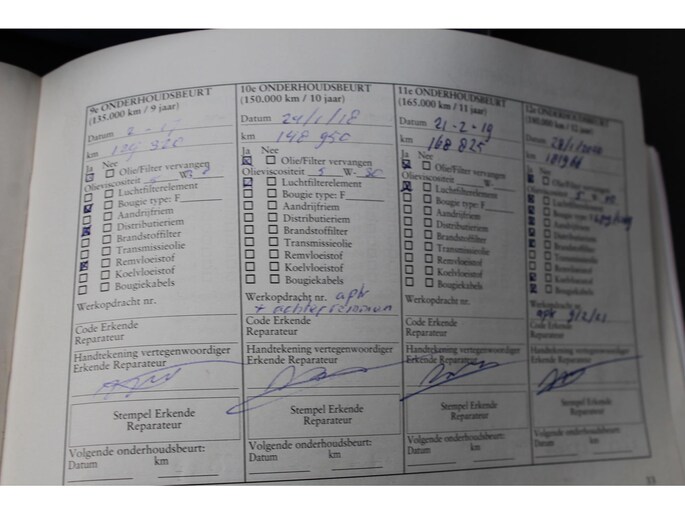 9e ONDERHOUDSBEURT
(135.000 km / 9 jaar)
Datum
km
Ja Nee
Olie/Filter vervangen
Olieviscositeit W-
Luchtfilterelement
Bougie type: F
Aandrijfriem
Distributieriem
Brandstoffilter
Transmissieolie
Remvloeistof
Koelvloeistof
Bougiekabels
Werkopdracht nr.
Code Erkende
Reparateur
Handtekening vertegenwoordiger
Erkende Reparateur
Stempel Erkende
Reparateur
Volgende onderhoudsbeurt:
Datum km
10e ONDERHOUDSBEURT
(150.000 km / 10 jaar)
Datum 24/1/18
km 148 950
Ja Nee
Olie/Filter vervangen
Olieviscositeit 5 W-30
Luchtfilterelement
Bougie type: F
Aandrijfriem
Distributieriem
Brandstoffilter
Transmissieolie
Remvloeistof
Koelvloeistof
Bougiekabels
Werkopdracht nr. apk
+ achter
Code Erkende
Reparateur
Handtekening vertegenwoordiger
Erkende Reparateur
Stempel Erkende
Reparateur
Volgende onderhoudsbeurt:
Datum km
11e ONDERHOUDSBEURT
(165.000 km / 11 jaar)
Datum 21-2-19
km 168 825
Ja Nee
Olie/Filter vervangen
Olieviscositeit W-
Luchtfilterelement
Bougie type: F
Aandrijfriem
Distributieriem
Brandstoffilter
Transmissieolie
Remvloeistof
Koelvloeistof
Bougiekabels
Werkopdracht nr.
Code Erkende
Reparateur
Handtekening vertegenwoordiger
Erkende Reparateur
Stempel Erkende
Reparateur
Volgende onderhoudsbeurt:
Datum km
12e ONDERHOUDSBEURT
(180.000 km / 12 jaar)
Datum
km
Ja Nee
Olie/Filter vervangen
Olieviscositeit
Luchtfilterelement
Bougie type
Aandrijfriem
Distributieriem
Brandstoffilter
Transmissieolie
Remvloeistof
Koelvloeistof
Bougiekabels
Werkopdracht nr.
apk 9/2/21
Code Erkende
Reparateur
Handtekening vertegenwoordiger
Erkende Reparateur
Stempel Erkende
Reparateur
Volgende onderhoudsbeurt:
Datum km
33